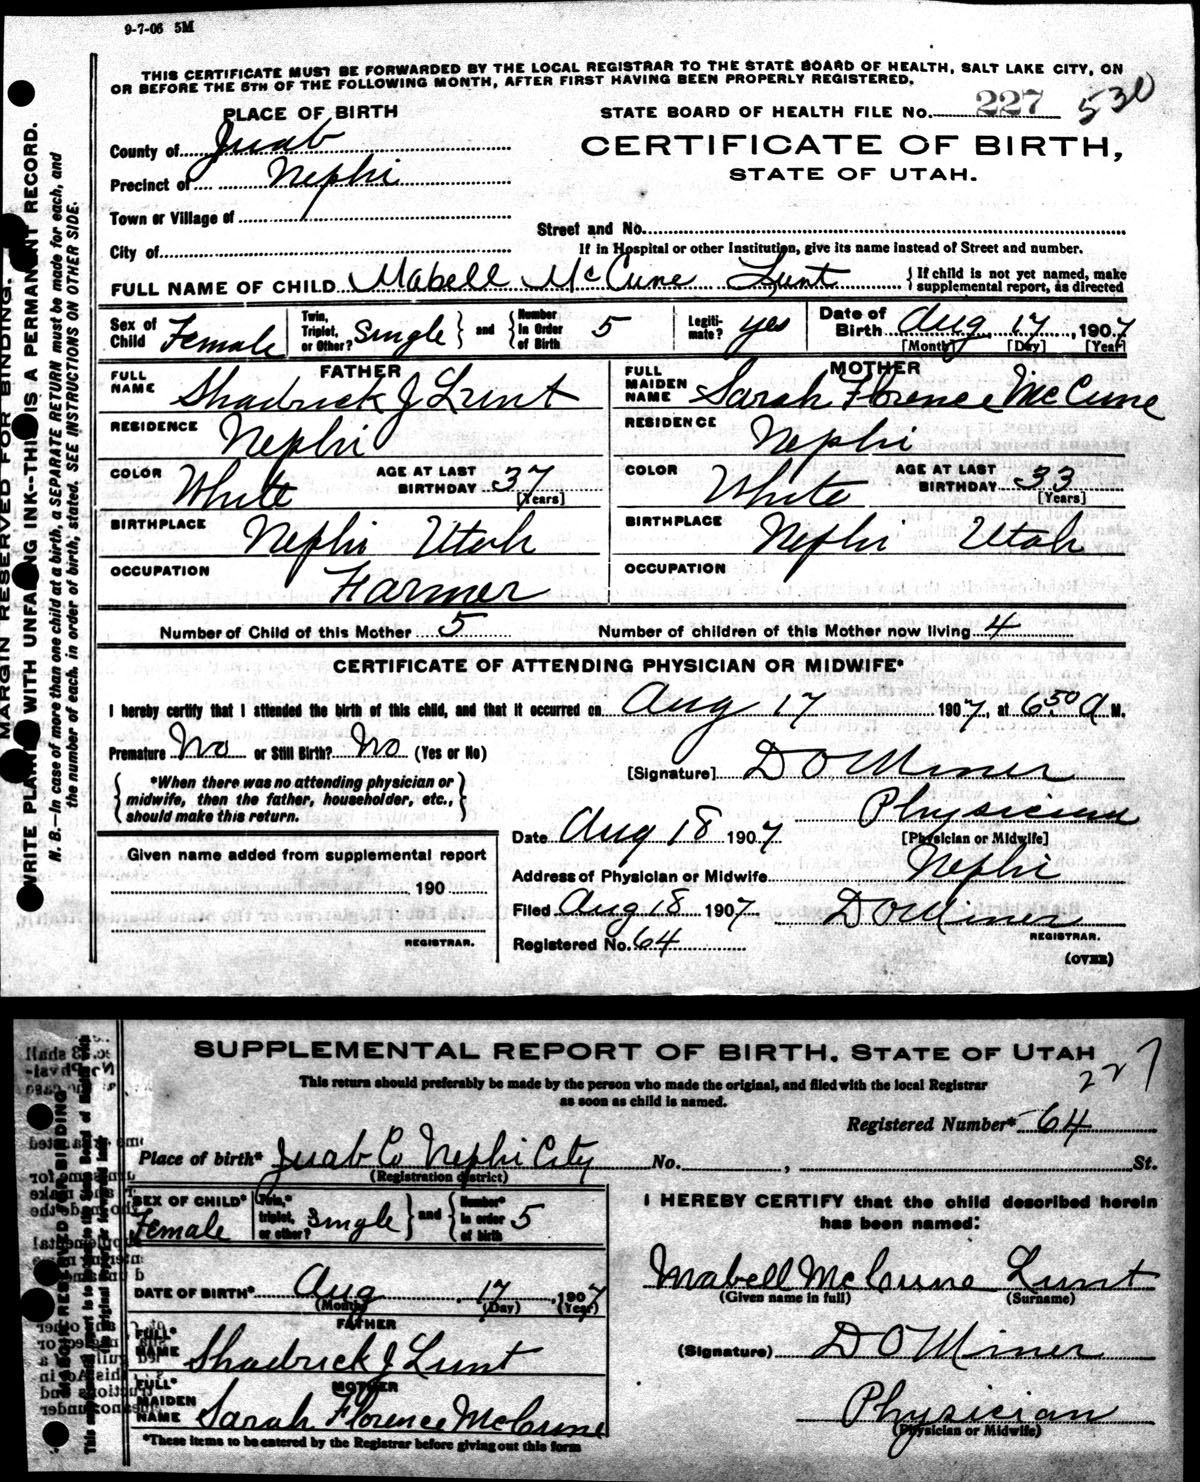 9-7-06 5M
THIS CERTIFICATE MUST BE FORWARDED BY THE LOCAL REGISTRAR TO THE STATE BOARD OF HEALTH, SALT LAKE CITY, ON
OR BEFORE THE 5TH OF THE FOLLOWING MONTH, AFTER FIRST HAVING BEEN PROPERLY REGISTERED.
MARGIN RESERVED FOR BINDING.
WRITE PLAINLY WITH UNFADING INK--THIS IS A PERMANENT RECORD.
N. B.—In case of more than one child at a birth, a SEPARATE RETURN must be made for each, and
the number of each, in order of birth, stated. SEE INSTRUCTIONS ON OTHER SIDE.
PLACE OF BIRTH
County of Juab
Precinct of Nephi
Town or Village of
City of
STATE BOARD OF HEALTH FILE No. 227 530
CERTIFICATE OF BIRTH,
STATE OF UTAH.
Street and No.
If in Hospital or other Institution, give its name instead of Street and number.
FULL NAME OF CHILD Mabell McCune Lunt { If child is not yet named, make supplemental report, as directed
Sex of Child Female Twin, Triplet, or Other? Single } and { Number in Order of Birth 5 Legitimate? yes Date of Birth Aug 17, 1907
[Month] [Day] [Year]
FATHER
FULL NAME Shadrick J Lunt
RESIDENCE Nephi
COLOR White AGE AT LAST BIRTHDAY 37 [Years]
BIRTHPLACE Nephi Utah
OCCUPATION Farmer
MOTHER
FULL MAIDEN NAME Sarah Florence McCune
RESIDENCE Nephi
COLOR White AGE AT LAST BIRTHDAY 33 [Years]
BIRTHPLACE Nephi Utah
OCCUPATION
Number of Child of this Mother 5 Number of children of this Mother now living 4
CERTIFICATE OF ATTENDING PHYSICIAN OR MIDWIFE*
I hereby certify that I attended the birth of this child, and that it occurred on Aug 17 1907, at 6.50 A M.
Premature No or Still Birth? No (Yes or No)
{ *When there was no attending physician or
midwife, then the father, householder, etc.,
should make this return. }
[Signature] D O Miner
Physician
[Physician or Midwife]
Date Aug 18 1907
Address of Physician or Midwife Nephi
Filed Aug 18 1907 D O Miner
REGISTRAR.
Registered No. 64
(OVER)
Given name added from supplemental report
190
REGISTRAR.
SUPPLEMENTAL REPORT OF BIRTH. STATE OF UTAH
227
This return should preferably be made by the person who made the original, and filed with the local Registrar
as soon as child is named.
Registered Number* 64
Place of birth* Juab Co Nephi City No. , St.
(Registration district)
SEX OF CHILD* Female Twin,* triplet, or other? Single } and { Number* in order of birth 5
DATE OF BIRTH* Aug 17, 1907
(Month) (Day) (Year)
FATHER
FULL* NAME Shadrick J Lunt
MOTHER
FULL* MAIDEN NAME Sarah Florence McCune
*These items to be entered by the Registrar before giving out this form
I HEREBY CERTIFY that the child described herein
has been named:
Mabell McCune Lunt
(Given name in full) (Surname)
(Signature) D O Miner
Physician
(Physician or Midwife)